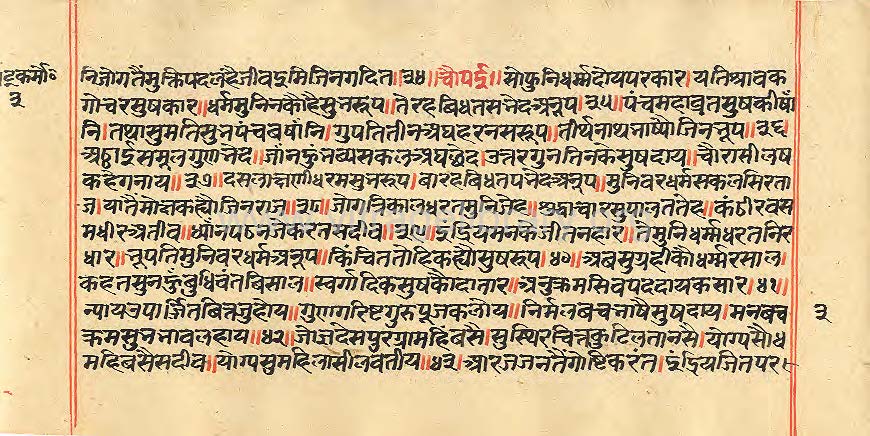 निजोगतैंमुक्तिपदलहैजीवइमिजिनगदित॥३४॥चौपई॥सोफुनिधर्म्मदोयपरकार।यतिश्रावक
गोचरसुषकार॥धर्ममुनिनकौहैसुनरूप।तेरहबिधतसभेदअनूप॥३५॥पंचमहाबृतसुषकीषां
नि।तथासुमतिसुनपंचबषांनि।गुपतितीनअघहरनसरूप॥तीर्थनाथभाष्यौजिनभूप॥३६
अठाईसमूलगुणभेद।जांनहुंभव्यसकलअघछेद।उत्तरगुनतिनकेसुषदाय।चौरासीलष
कहेगनाय॥३७॥दसलाक्षणीधरमसुनरूप।बारहबिधतपभेदअनूप॥मुनिवरधर्मसकलसिरता
ज।यातैमोक्षकह्यौजिनराज॥३८॥जोगत्रिकालधरतमुनिजेह।शुद्धाचारसुपालततेह॥कंठीरवस
मधीरअतीव॥ध्यांनपठनजेकरतसदीव॥३९॥इंद्रियमनकेजीतनहार।तेमुनिधर्म्मधरतनिर
धार॥भूपतिमुनिवरधर्मअनूप॥किंचिततोहिकह्यौसुषरूप॥४०॥अबसुग्रहीकौधर्म्मरसाल।
कहतसुनहुंबुधिवंतबिसाल॥स्वर्गादिकसुषकौदातार॥अनुक्रमसिवपददायकसार॥४१॥
न्यायउपार्जितबित्तजुहोय॥गुणगरिष्टगुरुपूजकलोय॥निर्मलबचनभाषैसुषदाय।मनबच
क्रमसुभभावलहाय॥४२॥जोजदेसपुरग्राममहिंबसै।सुस्थिरचित्तकुटिलतानसै।योग्यसौध
महिबसैसदीव॥योग्यसुमहिलासीलवतीय॥४३॥आरजजनतैंगोष्टिकरंत।इंद्रियजितपर
३
३
www.vitragelibrary.org